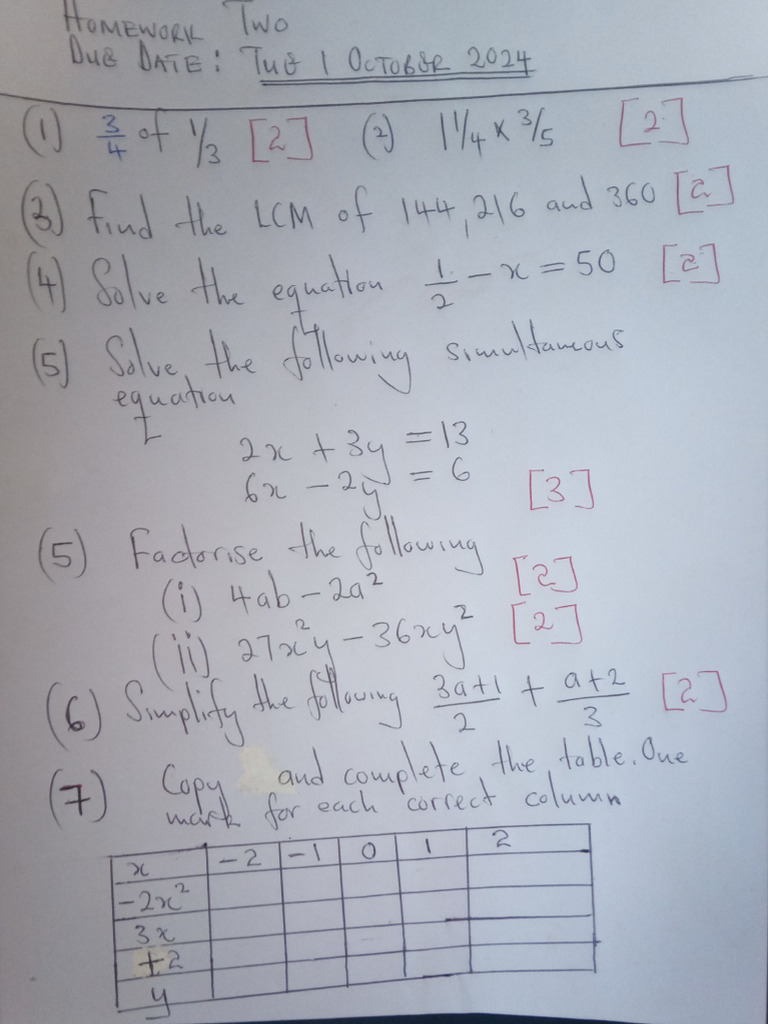 HOMEWORK TWO
DUE DATE: TUE 1 OCTOBER 2024
(1) 3/4 of 1/3 [2] (2) 1 1/4 x 3/5 [2]
(3) Find the LCM of 144, 216 and 360 [2]
(4) Solve the equation 1/2 - x = 50 [2]
(5) Solve the following simultaneous
equation
2x + 3y = 13
6x - 2y = 6 [3]
(5) Factorise the following
(i) 4ab - 2a² [2]
(ii) 27x²y - 36xy² [2]
(6) Simplify the following (3a+1)/2 + (a+2)/3 [2]
(7) Copy and complete the table. One
mark for each correct column
x -2 -1 0 1 2
-2x²
3x
+2
y